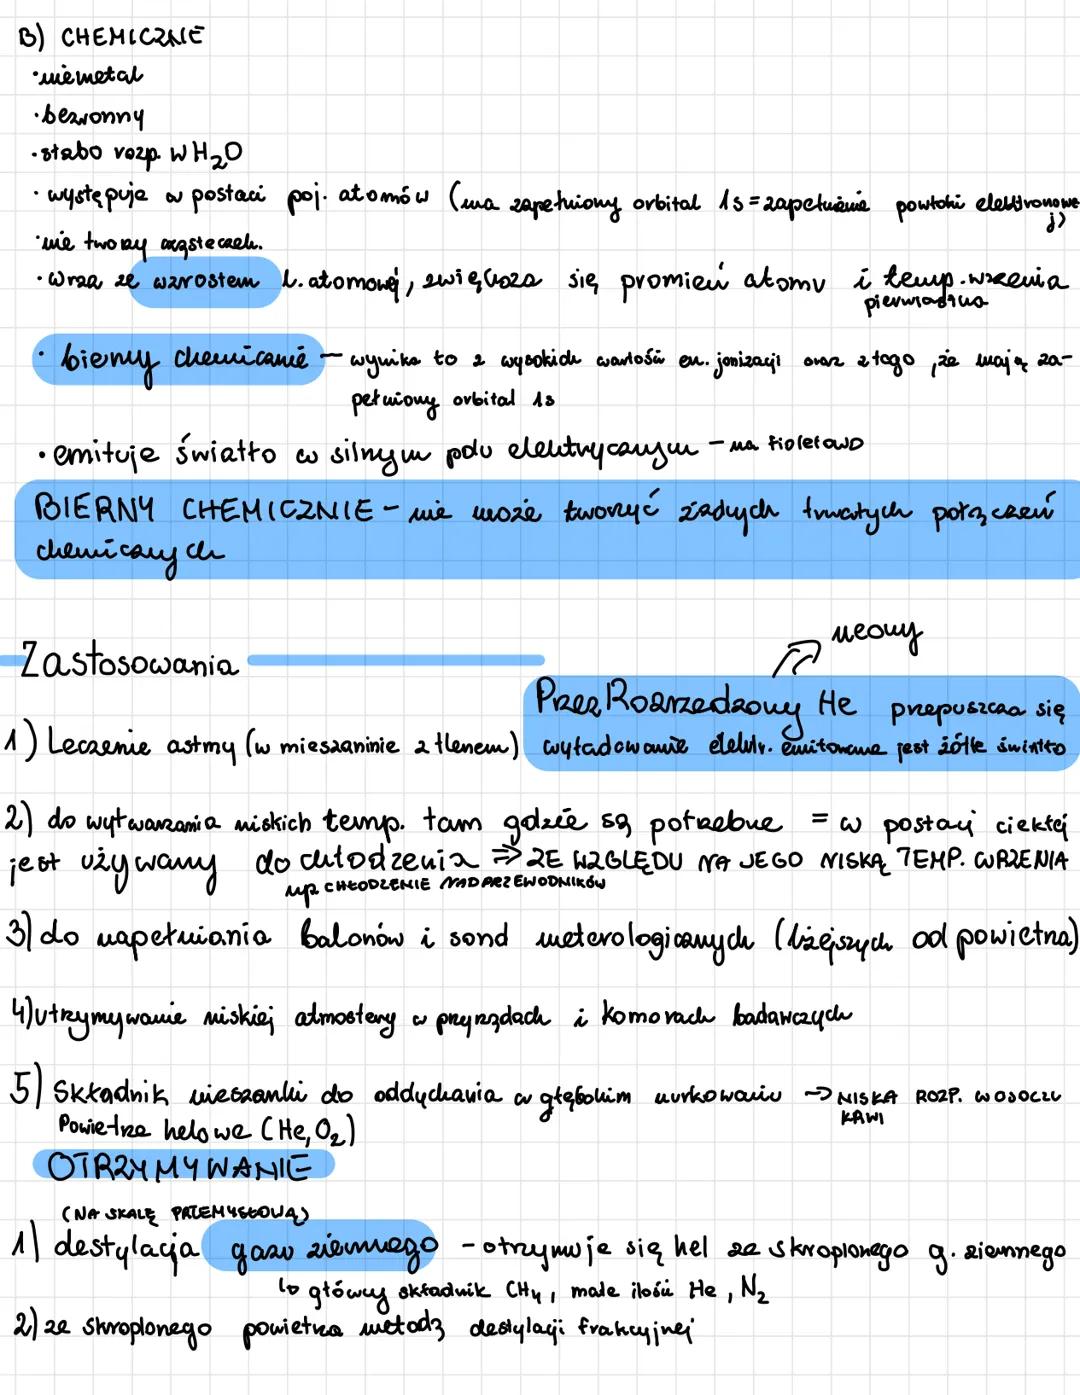 B) CHEMICZNE
·niemetal
·bezwonny
·słabo rozp. w H₂O
·występuje w postaci poj. atomów (ma zapełniony orbital 1s = zapełnienie powłoki elektronowej)
·nie tworzy cząsteczek.
·wraz ze wzrostem l. atomowej, zwiększa się promień atomu i temp. wrzenia
pierwiastka
·bierny chemicznie – wynika to z wysokich wartości en. jonizacji oraz z tego, że mają za-
pełniony orbital 1s
·emituje światło w silnym polu elektrycznym – na fioletowo
BIERNY CHEMICZNIE – nie może tworzyć żadnych trwałych połączeń
chemicznych
neony
Zastosowania
Przez Rozrzedzony He przepuszcza się
1) Leczenie astmy (w mieszaninie z tlenem)
wyładowanie elektr. emitowane jest żółte światło
2) do wytwarzania niskich temp. tam gdzie są potrzebne = w postaci ciekłej
jest używany do chłodzenia ⇒ ZE WZGLĘDU NA JEGO NISKĄ TEMP. WRZENIA
np. CHŁODZENIE NADPRZEWODNIKÓW
3) do napełniania balonów i sond meterologicznych (lżejszych od powietrza)
4) utrzymywanie niskiej atmosfery w przyrządach i komorach badawczych
5) Składnik mieszanki do oddychania w głębokim nurkowaniu → NISKA ROZP. W OSOCZU
KRWI
Powietrze helowe (He, O₂)
OTRZYMYWANIE
(NA SKALĘ PRZEMYSŁOWĄ)
1) destylacja gazu ziemnego – otrzymuje się hel ze skroplonego g. ziemnego
↳ główny składnik CH₄, małe ilości He, N₂
2) ze skroplonego powietrza metodą destylacji frakcyjnej